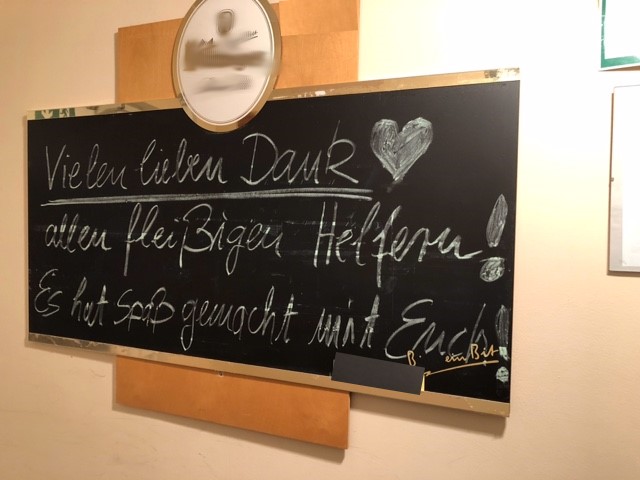 Vielen lieben Dank
allen fleißigen Helfern!
Es hat Spaß gemacht mit Euch!
ein Bit